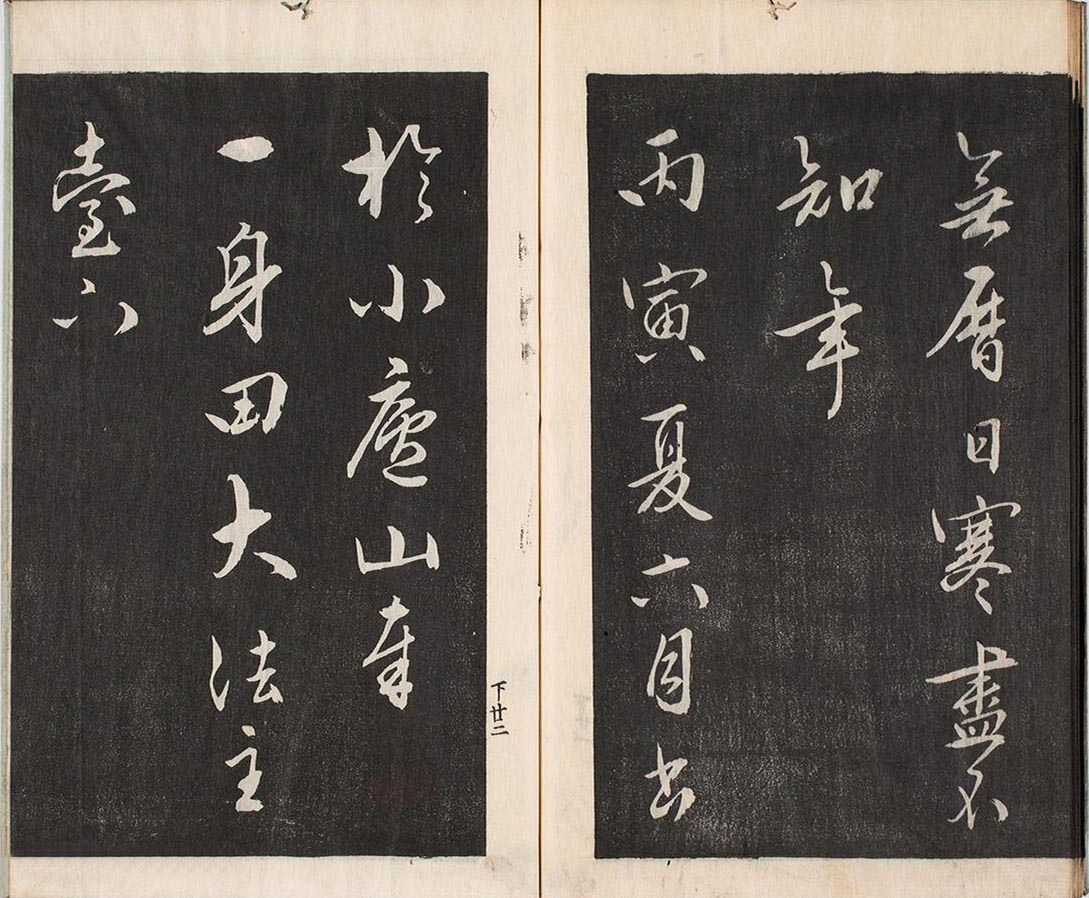 無曆日寒盡不
知年
丙寅夏六月书
於小廬山奉
一身田大法主
臺下
下廿二